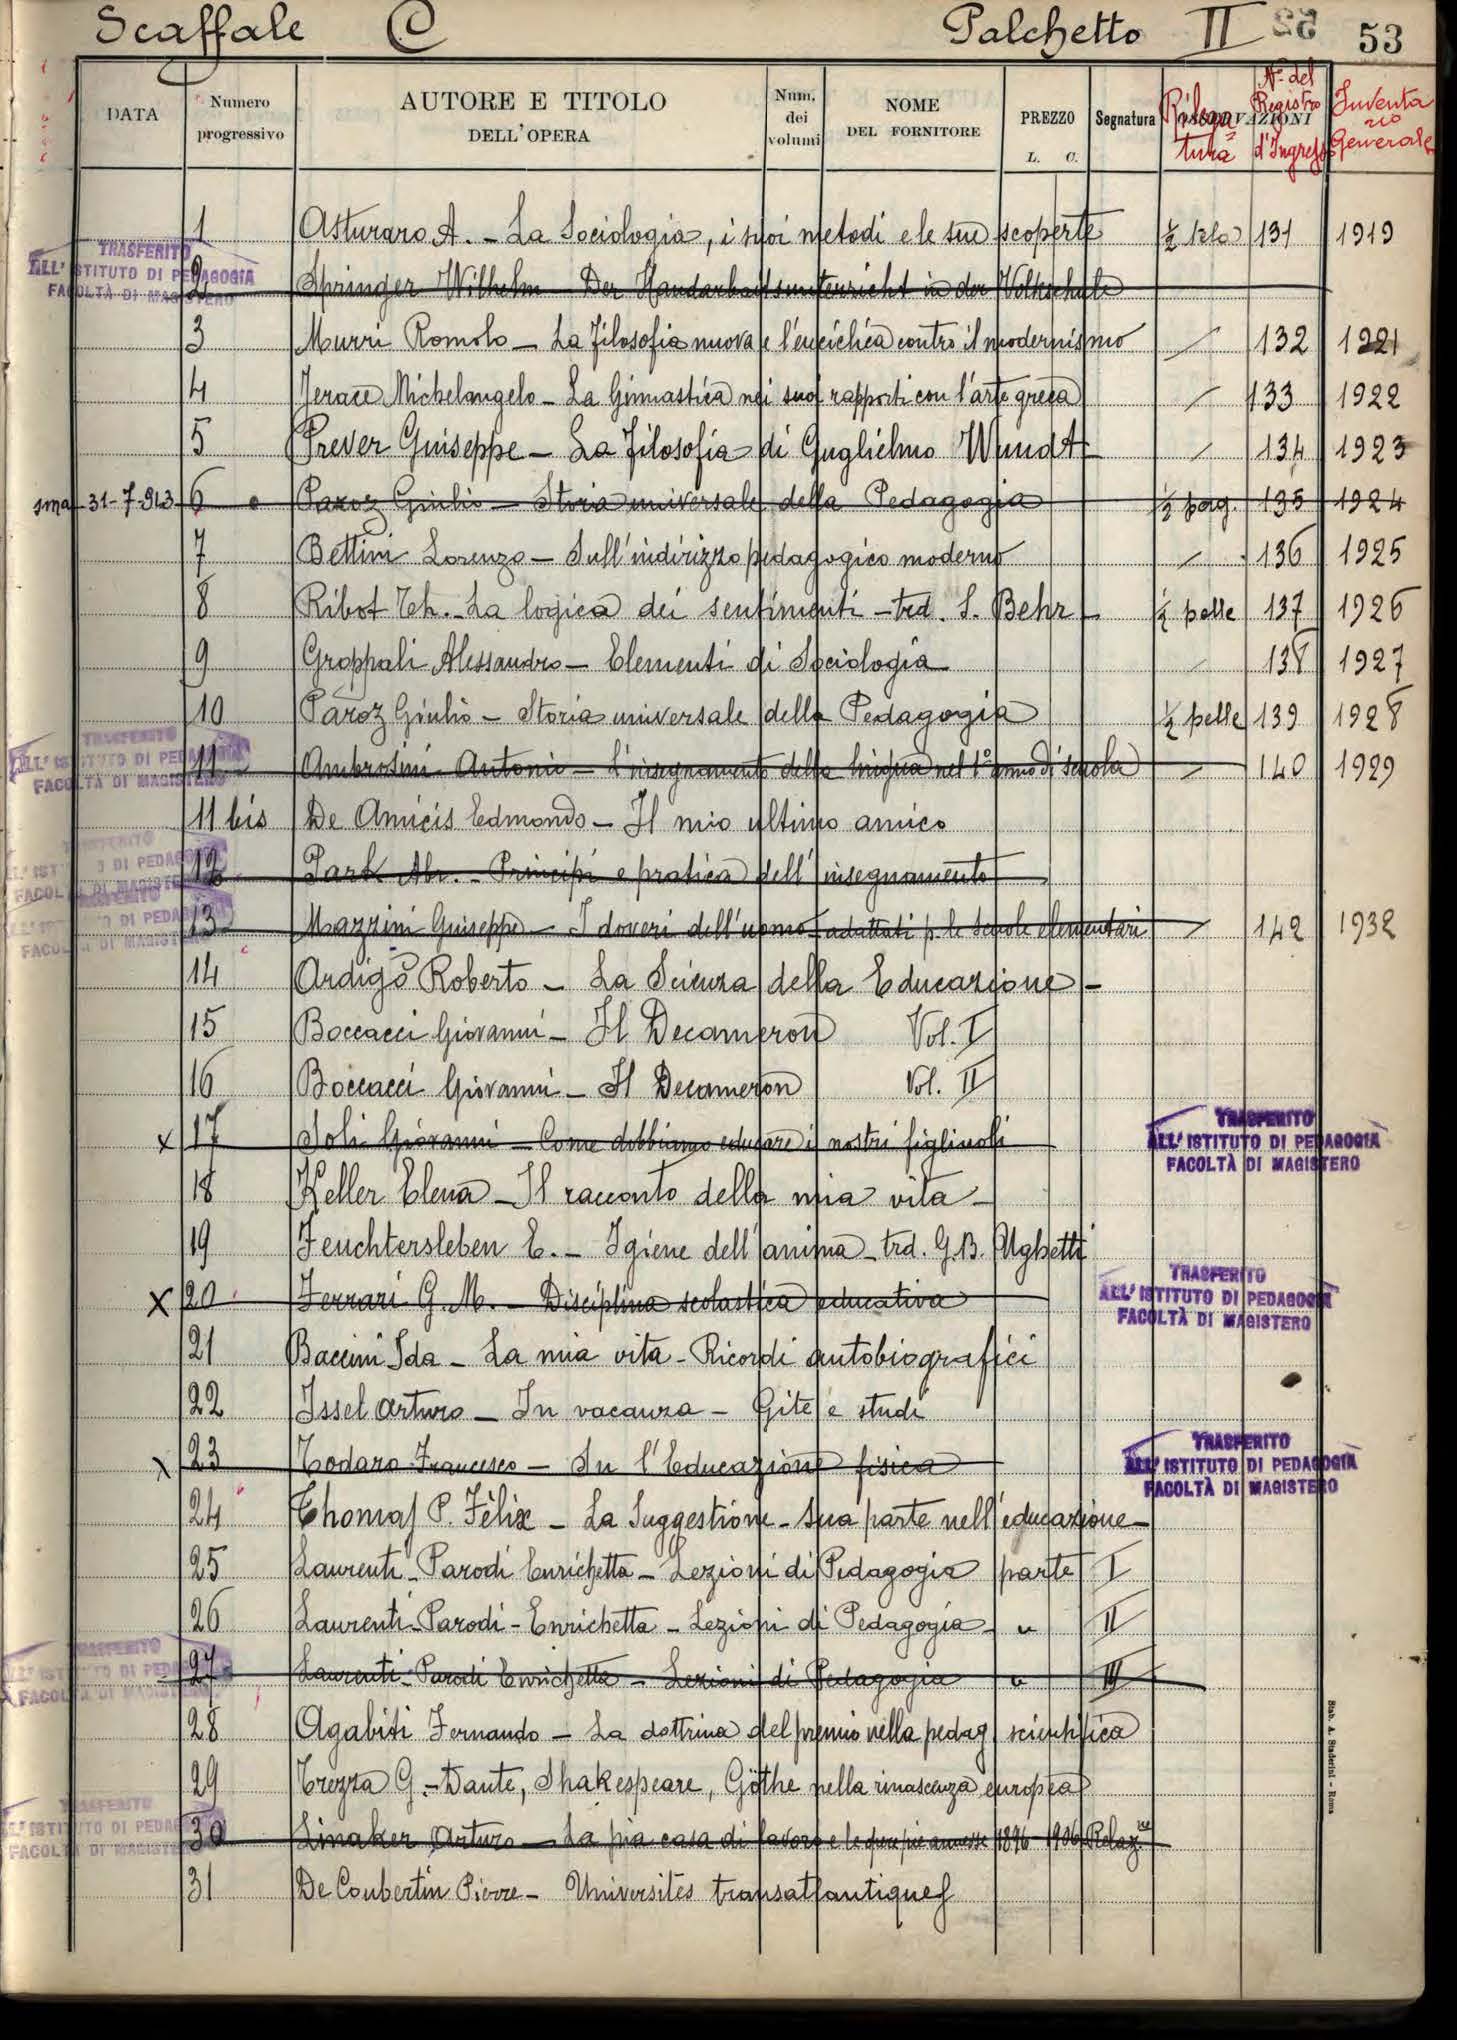 Scaffale C Palchetto II 53
DATA Numero progressivo AUTORE E TITOLO DELL'OPERA Num. dei volumi NOME DEL FORNITORE PREZZO L. C. Segnatura OSSERVAZIONI Rilegatura N° del Registro d'Ingresso Inventario Generale
1 Asturaro A. – La Sociologia, i suoi metodi e le sue scoperte 131 1919
TRASFERITO
ALL'ISTITUTO DI PEDAGOGIA
FACOLTÀ DI MAGISTERO
2 Springer Wilhelm – Der Handarbeitsunterricht in der Volkschule
3 Murri Romolo – La filosofia nuova e l'enciclica contro il modernismo / 132 1921
4 Jerace Michelangelo – La Ginnastica nei suoi rapporti con l'arte greca / 133 1922
5 Prever Giuseppe – La filosofia di Guglielmo Wundt – / 134 1923
31-7-913 6 Paroz Giulio – Storia universale della Pedagogia ½ perg. 135 1924
7 Bettini Lorenzo – Sull'indirizzo pedagogico moderno / 136 1925
8 Ribot Th. – La logica dei sentimenti – trd. S. Behr – ½ pelle 137 1926
9 Groppali Alessandro – Elementi di Sociologia / 138 1927
10 Paroz Giulio – Storia universale della Pedagogia ½ pelle 139 1928
TRASFERITO
ALL'ISTITUTO DI PEDAGOGIA
FACOLTÀ DI MAGISTERO
11 Ambrosini Antonio – L'insegnamento della lingua nel 1° anno di scuola / 140 1929
11 bis De Amicis Edmondo – Il mio ultimo amico
TRASFERITO
ALL'ISTITUTO DI PEDAGOGIA
FACOLTÀ DI MAGISTERO
12 Park Abr. – Principi e pratica dell'insegnamento
TRASFERITO
ALL'ISTITUTO DI PEDAGOGIA
FACOLTÀ DI MAGISTERO
13 Mazzini Giuseppe – I doveri dell'uomo adattati p. le scuole elementari / 142 1932
14 Ardigò Roberto – La Scienza della Educazione –
15 Boccacci Giovanni – Il Decameron Vol. I
16 Boccacci Giovanni – Il Decameron Vol. II
x 17 Soli Giovanni – Come dobbiamo educare i nostri figliuoli
TRASFERITO
ALL'ISTITUTO DI PEDAGOGIA
FACOLTÀ DI MAGISTERO
18 Keller Elena – Il racconto della mia vita –
19 Feuchtersleben E. – Igiene dell'anima – trd. G.B. Ughetti
x 20 Ferrari G. M. – Disciplina scolastica educativa
TRASFERITO
ALL'ISTITUTO DI PEDAGOGIA
FACOLTÀ DI MAGISTERO
21 Baccini Ida – La mia vita – Ricordi autobiografici
22 Issel Arturo – In vacanza – Gite e studi
x 23 Todaro Francesco – Su l'Educazione fisica
TRASFERITO
ALL'ISTITUTO DI PEDAGOGIA
FACOLTÀ DI MAGISTERO
24 Thomas P. Fèlix – La Suggestione – sua parte nell'educazione –
25 Laurenti-Parodi Enrichetta – Lezioni di Pedagogia parte I
26 Laurenti-Parodi-Enrichetta – Lezioni di Pedagogia – " II
TRASFERITO
ALL'ISTITUTO DI PEDAGOGIA
FACOLTÀ DI MAGISTERO
27 Laurenti-Parodi Enrichetta – Lezioni di Pedagogia " III
28 Agabiti Fernando – La dottrina del premio nella pedag. scientifica
29 Trezza G. – Dante, Shakespeare, Göthe nella rinascenza europea
TRASFERITO
ALL'ISTITUTO DI PEDAGOGIA
FACOLTÀ DI MAGISTERO
30 Linaker Arturo – La pia casa di lavoro e le opere pie annesse 1896-1906 Relaz.ne
31 De Coubertin Pierre – Universités transatlantiques
Stab. A. Staderini - Roma